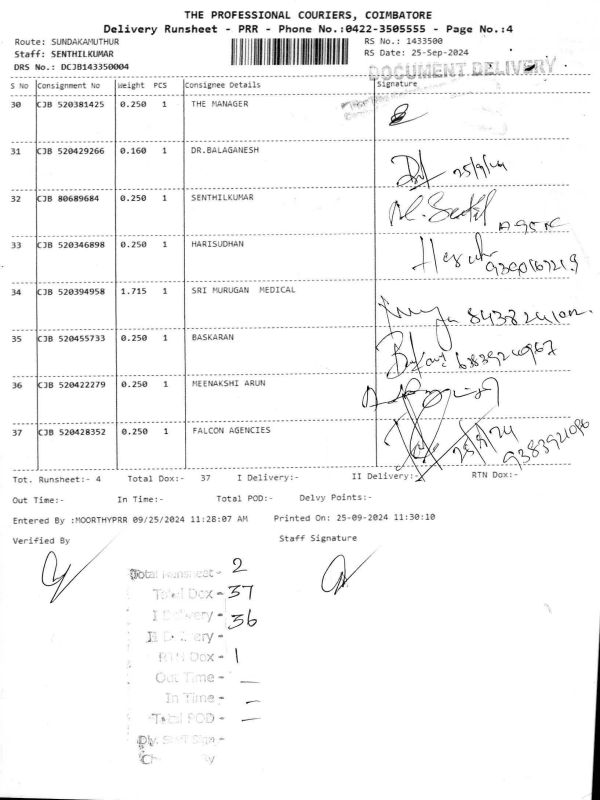 THE PROFESSIONAL COURIERS, COIMBATORE
Delivery Runsheet - PRR - Phone No.:0422-3505555 - Page No.:4
Route: SUNDAKAMUTHUR RS No.: 1433500
Staff: SENTHILKUMAR RS Date: 25-Sep-2024
DRS No.: DCJB143350004
DOCUMENT DELIVERY
S No Consignment No Weight PCS Consignee Details Signature
30 CJB 520381425 0.250 1 THE MANAGER
31 CJB 520429266 0.160 1 DR.BALAGANESH
25/9/24
32 CJB 80689684 0.250 1 SENTHILKUMAR
33 CJB 520346898 0.250 1 HARISUDHAN
34 CJB 520394958 1.715 1 SRI MURUGAN MEDICAL
35 CJB 520455733 0.250 1 BASKARAN
36 CJB 520422279 0.250 1 MEENAKSHI ARUN
37 CJB 520428352 0.250 1 FALCON AGENCIES
25/9/24
9383921096
Tot. Runsheet:- 4 Total Dox:- 37 I Delivery:- II Delivery:- RTN Dox:-
Out Time:- In Time:- Total POD:- Delvy Points:-
Entered By :MOORTHYPRR 09/25/2024 11:28:07 AM Printed On: 25-09-2024 11:30:10
Verified By Staff Signature
Total Runsheet - 2
Total Dox - 37
I Delivery - 36
II Delivery -
RTN Dox - 1
Out Time - —
In Time - —
Total POD - —